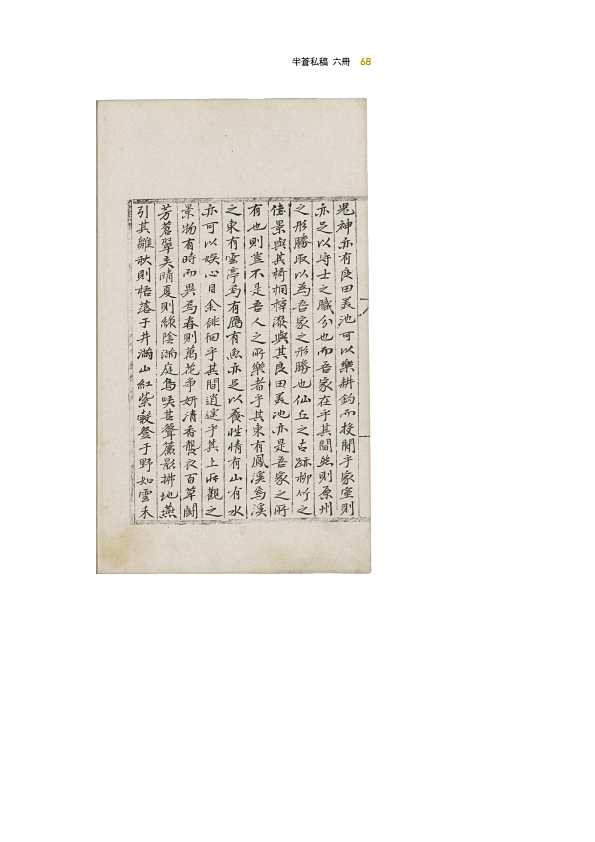 半蒼私稿 六冊 68
鬼神亦有良田美池可以樂耕釣而投閑乎家室則
亦足以守士之職分也而吾家在乎其間然則原州
之形勝取以爲吾家之形勝也仙丘之古跡柳竹之
佳景與其椅桐梓漆與其良田美池亦是吾家之所
有也則豈不是吾人之所樂者乎其東有鳳溪焉溪
之東有雲亭焉有鳥有魚亦足以養性情有山有水
亦可以娛心目余徘徊乎其間逍遙乎其上所觀之
景物有時而異焉春則萬花爭妍清香襲衣百草鬪
芳蒼翠交晴夏則綠陰滿庭鳥啼甚聲簾影拂地燕
引其雛秋則梧落于井滿山紅紫穀登于野如雲禾